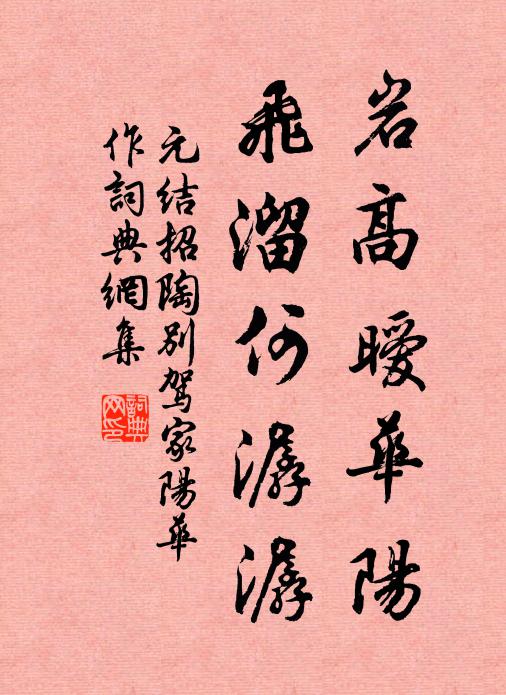 岩高曖華陽
飛溜何潺潺
元结招陶别驾家陽華
作詞典網集
詞典
网集